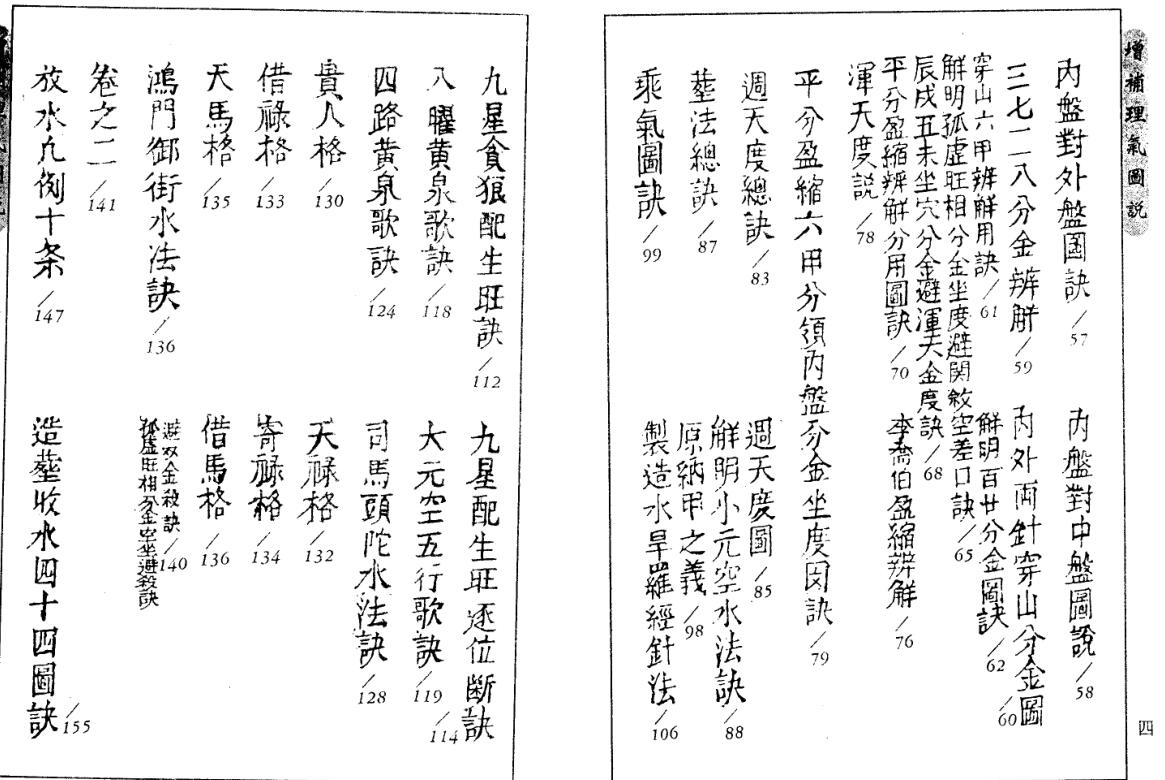 增補理氣圖說
四
內盤對外盤圖訣/57
內盤對中盤圖說/58
三七二八分金辨解/59
內外両針穿山分金圖/60
穿山六甲辨解用訣/61
解明百廿分金圖訣/62
解明孤虛旺相分金坐度避関煞空差口訣/65
辰戌五未坐穴分金避渾天金度訣/68
平分盈縮辨解分用圖訣/70
李喬伯盈縮辨解/76
渾天度説/78
平分盈縮六甲分領內盤分金坐度図訣/79
週天度總訣/83
週天度圖/85
塟法總訣/87
解明小元空水法訣/88
原納甲之義/98
乘氣圖訣/99
製造水旱羅經針法/106
九星貪狼配生旺訣/112
九星配生旺逐位斷訣/114
八曜黃泉歌訣/118
大元空五行歌訣/119
四路黃泉歌訣/124
司馬頭陀水法訣/128
貴人格/130
天祿格/132
借祿格/133
寄祿格/134
天馬格/135
借馬格/136
鴻門御街水法訣/136
避双金殺訣/140
孤虛旺相分金坐避殺訣
卷之二/141
放水凢例十条/147
造塟收水四十四圖訣/155